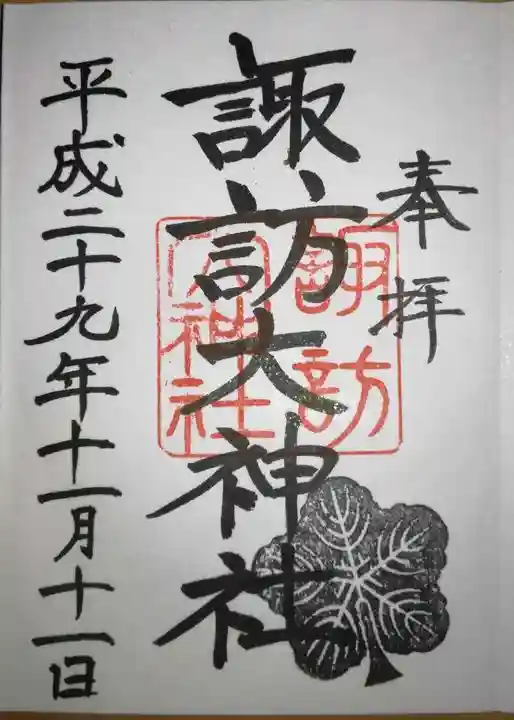 奉拝
諏訪大神社
諏訪
大神社
平成二十九年十一月十一日